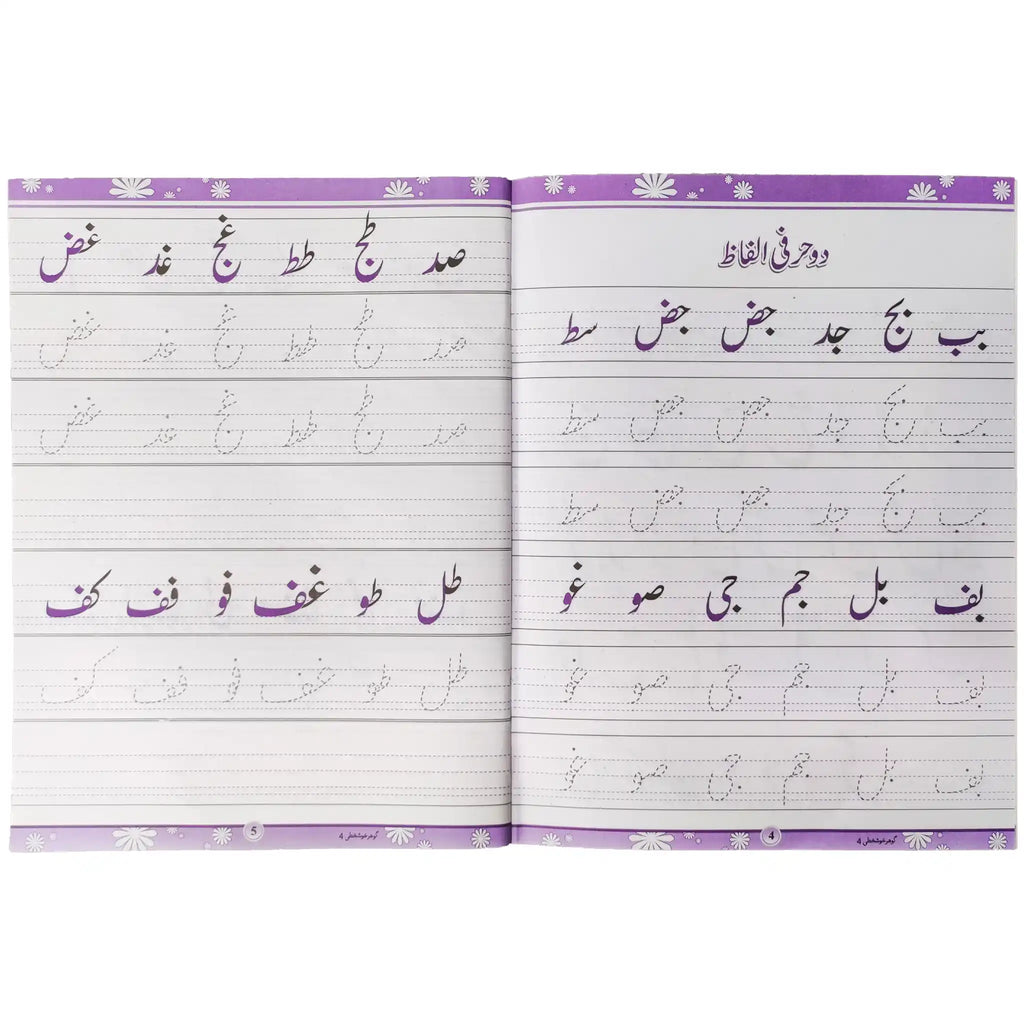 دو حرفی الفاظ
بب بج جد جض جض سط
بب بج جد جض جض سط
بب بج جد جض جض سط
بف بل جم جی صو غو
بف بل جم جی صو غو
بف بل جم جی صو غو
گوہر خوشخطی 4
4
صد طج طط غج غد غض
صد طج طط غج غد غض
صد طج طط غج غد غض
طل طو غف فو فف کف
طل طو غف فو فف کف
گوہر خوشخطی 4
5